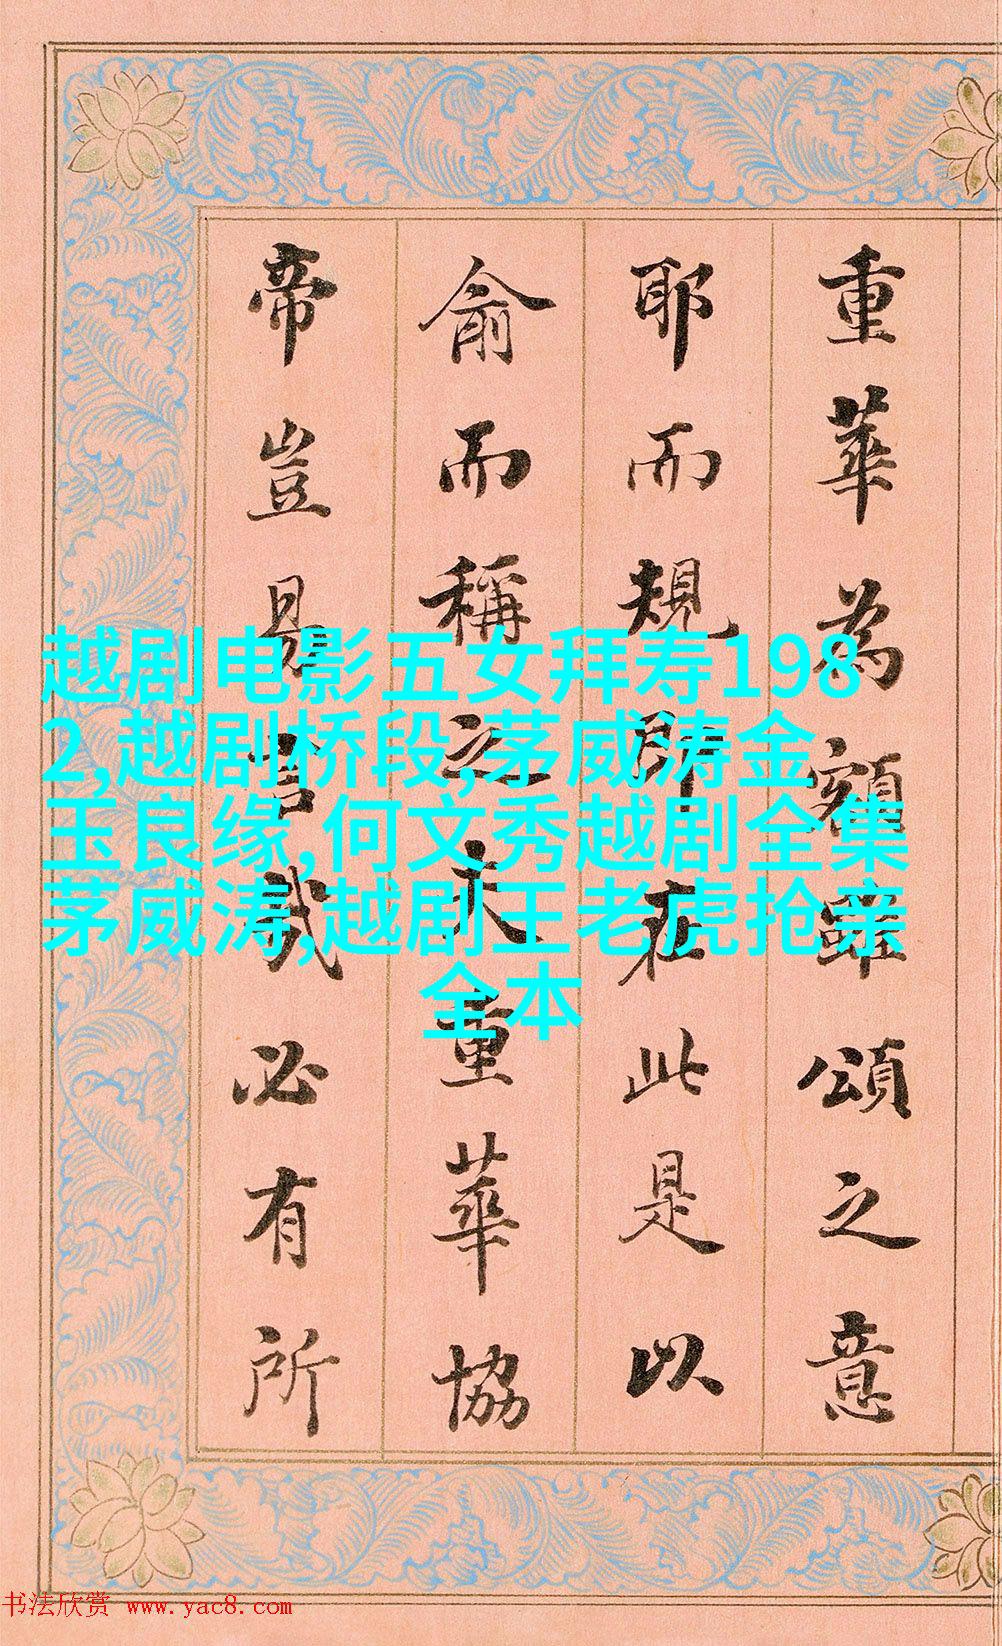 重華為額雖頌之意
耶而規即在此是以
俞而稱之夫重華協
帝豈易言哉必有所
越剧电影五女拜寿198
2,越剧桥段,茅威涛金
玉良缘,何文秀越剧全集
茅威涛,越剧王老虎抢亲
全本
书法欣赏 www.yac8.com